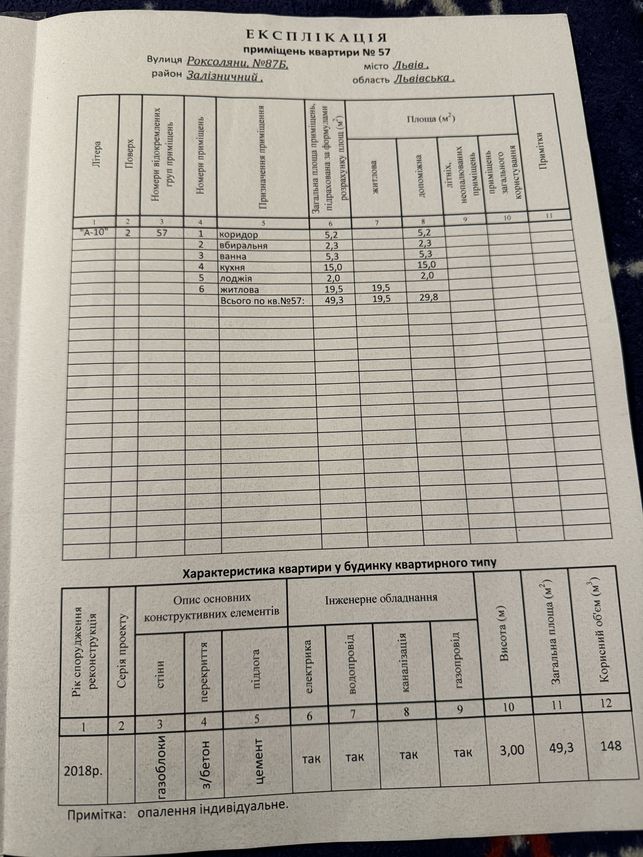 ЕКСПЛІКАЦІЯ
приміщень квартири № 57
Вулиця Роксоляни, №87Б. місто Львів .
район Залізничний . область Львівська .
Літера
Поверх
Номери відокремлених груп приміщень
Номери приміщень
Призначення приміщення
Загальна площа приміщень, підрахована за формулами розрахунку площ (м²)
Площа (м²)
житлова
допоміжна
літніх, неопалюваних приміщень
приміщень загального користування
Примітки
1 2 3 4 5 6 7 8 9 10 11
"А-10" 2 57 1 коридор 5,2 5,2
2 вбиральня 2,3 2,3
3 ванна 5,3 5,3
4 кухня 15,0 15,0
5 лоджія 2,0 2,0
6 житлова 19,5 19,5
Всього по кв.№57: 49,3 19,5 29,8
Характеристика квартири у будинку квартирного типу
Рік спорудження реконструкція
Серія проекту
Опис основних конструктивних елементів
стіни
перекриття
підлога
Інженерне обладнання
електрика
водопровід
каналізація
газопровід
Висота (м)
Загальна площа (м²)
Корисний об'єм (м³)
1 2 3 4 5 6 7 8 9 10 11 12
2018р. газоблоки з/бетон цемент так так так так 3,00 49,3 148
Примітка: опалення індивідуальне.